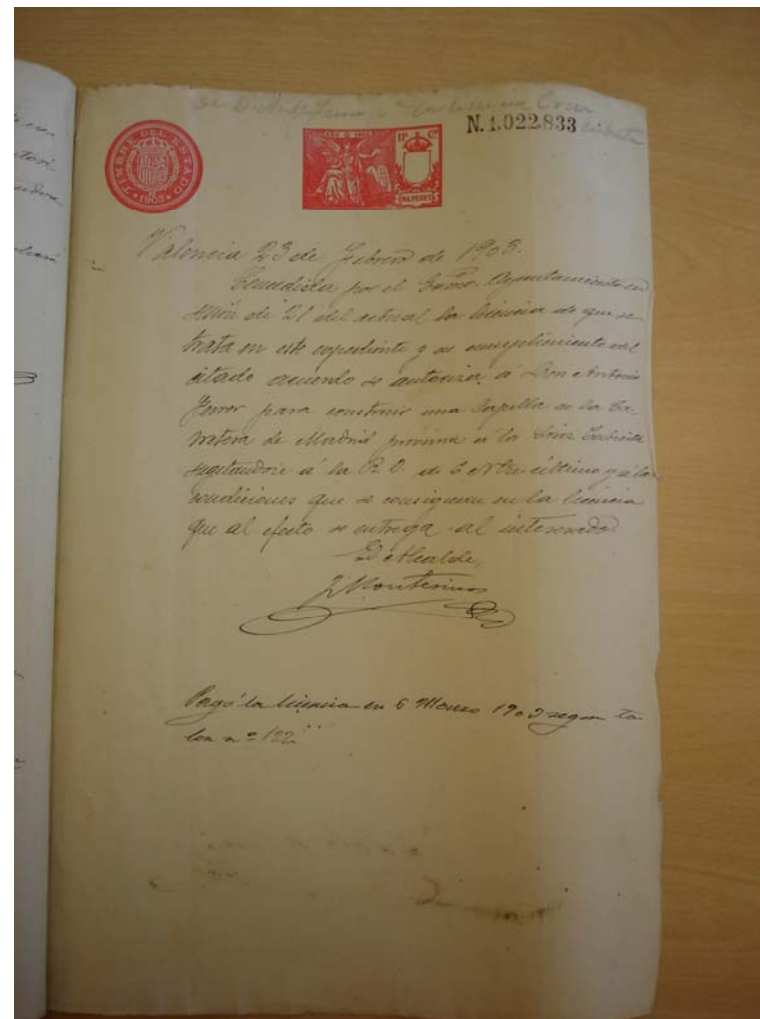 N.1.022.833
TIMBRE DEL ESTADO
1903
Valencia 23 de Febrero de 1903.
Concedida por el Excmo. Ayuntamiento en
sesión de 21 del actual la licencia de que se
trata en este expediente y en cumplimiento del
citado acuerdo se autoriza á Don Antonio
Ferrer para construir una Capilla en la Ca-
rretera de Madrid próxima á la Cruz Cubierta
sugetandose á la R. O. de 6 último y á las
condiciones que se consignan en la licencia
que al efecto se entrega al interesado.
El Alcalde,
Montesinos
Pagó la licencia en 6 Marzo 1903 segun ta
lon nº 122